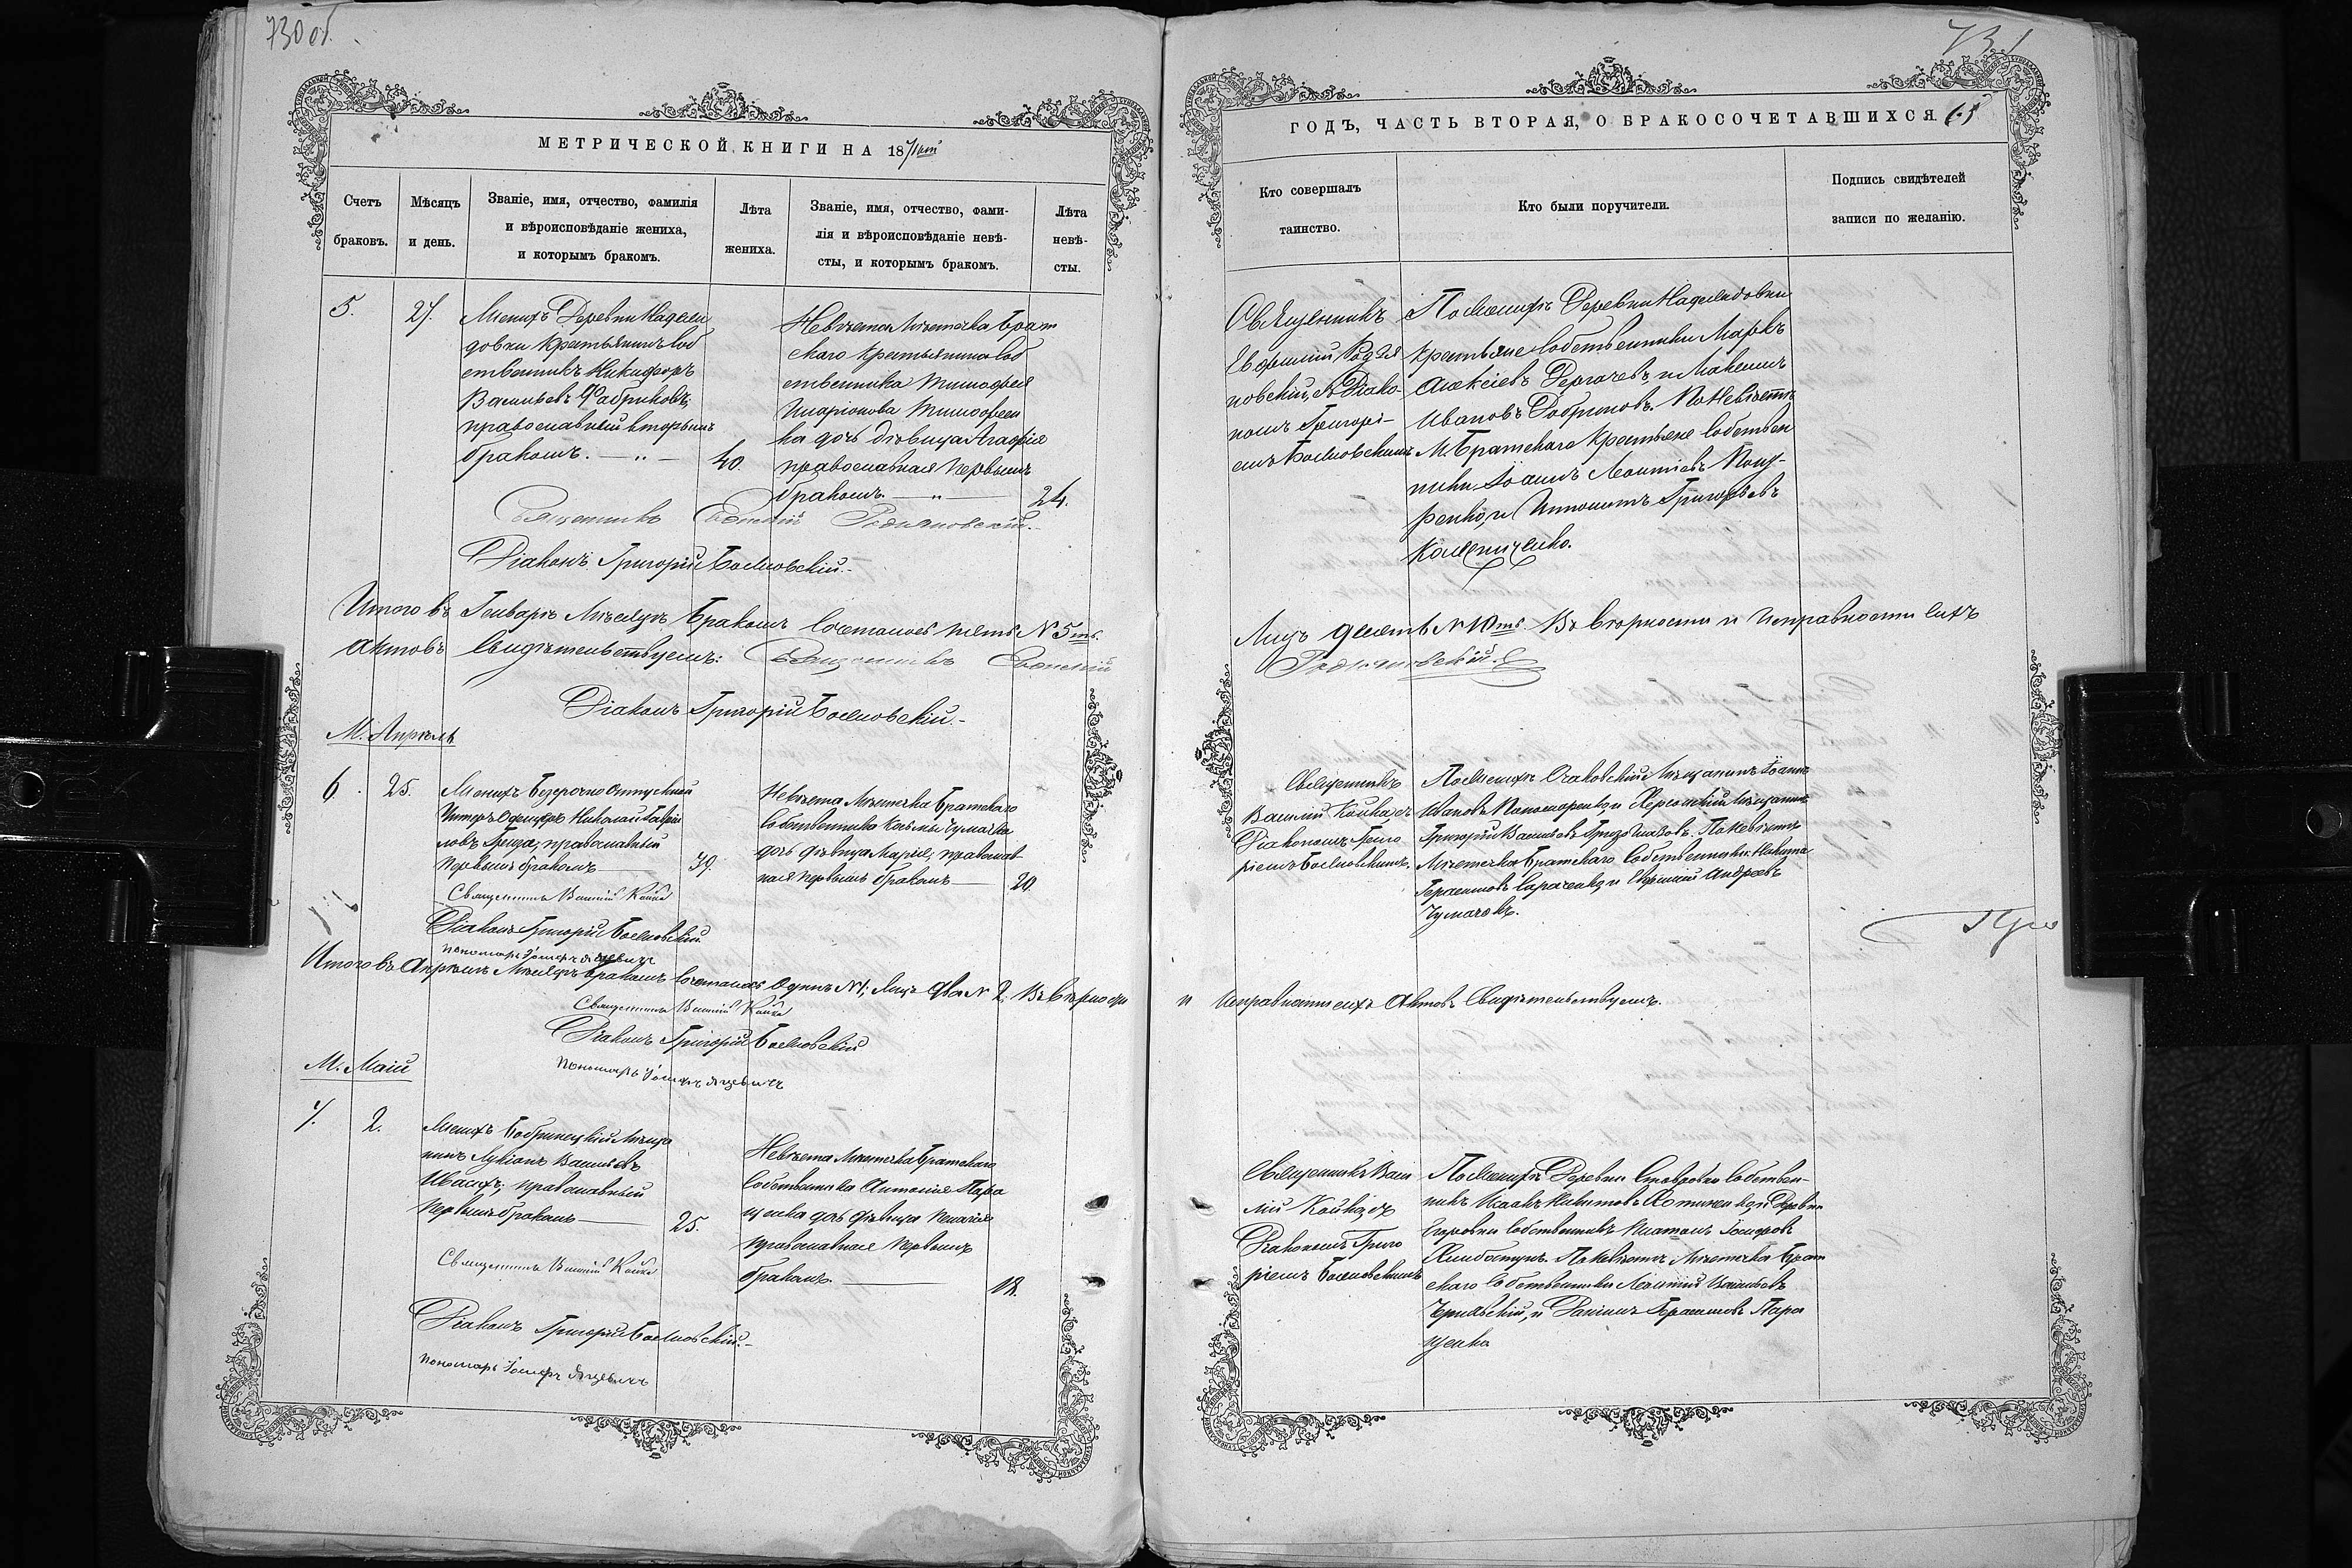 730 об.
МЕТРИЧЕСКОЙ КНИГИ НА 1871й
Счетъ
браковъ.
Мѣсяцъ
и день.
Званіе, имя, отчество, фамилія
и вѣроисповѣданіе жениха,
и которымъ бракомъ.
Лѣта
жениха.
Званіе, имя, отчество, фами-
лія и вѣроисповѣданіе невѣ-
сты, и которымъ бракомъ.
Лѣта
невѣ-
сты.
5.
27.
Женихъ Деревни Надеж
довки крестьянинъ соб
ственникъ Никифоръ
Васильевъ
православный вторымъ
бракомъ. — „ —
40.
Невѣста Мѣстечка Брат
скаго крестьянина соб
ственника Тимофея
Иларіонова Тимофеен
ка дочь дѣвица Агафія
православная первымъ
бракомъ — „ —
24.
Священникъ Евфимій Родзяновскій.
Діаконъ Григорій Боемовскій.-
Итого въ Генварѣ Мѣсяцѣ Бракомъ сочеталось пять №5ть.
Актовъ свидѣтельствуемъ: Священникъ Евфимій
Діаконъ Григорій Боемовскій-
М. Апрѣль
6.
25.
Женихъ безсрочно Отпускной
Унтеръ Офицеръ Николай Гаврі
ловъ православный
первымъ бракомъ —
39.
Невѣста Мѣстечка Братскаго
Собственника Козьмы Чумачка
дочь дѣвица Марія, православ
ная первымъ бракомъ —
20.
Священникъ Василій Койка
Діаконъ Григорій Боемовскій.
Пономарь Іосифъ Яцевичъ
Итого въ Апрѣлѣ Мѣсяцѣ Бракомъ сочеталось Одинъ №1; Лицъ два №2. Въ вѣрности
Священникъ Василій Койка
Діаконъ Григорій Боемовскій
Пономарь Іосифъ Яцевичъ
М. Маій
7.
2.
Женихъ Бобринецкій Мѣща
нинъ Лукіанъ Васильевъ
православный
первымъ бракомъ —
25.
Невѣста Мѣстечка Братскаго
Собственника Антонія Пара
щенка дочь дѣвица Пелагія
православная первымъ
бракомъ. —
18.
Священникъ Василій Койка
Діаконъ Григорій Боемовскій.-
Пономарь Іосифъ Яцевичъ
731
ГОДЪ, ЧАСТЬ ВТОРАЯ, О БРАКОСОЧЕТАВШИХСЯ.
Кто совершалъ
таинство.
Кто были поручители.
Подпись свидѣтелей
записи по желанію.
Священникъ
Евфимій Родзя
новскій, съ Діако-
номъ Григорі-
емъ Боемовскимъ
По Женихѣ Деревни Надеждовки
крестьяне собственники Маркъ
Алексіевъ Дергачевъ, и Максимъ
Ивановъ По Невѣстѣ
М. Братскаго крестьяне собствен
ники Іоаннъ Леонтіевъ
и Григорьевъ
Лицъ десять №10ть. Въ вѣрности и исправности сихъ
Родзяновскій.
Священникъ
Василій Койка, съ
Діакономъ Григо
ріемъ Боемовскимъ.
По Женихѣ Очаковскій Мѣщанинъ Іоаннъ
Ивановъ Пономаренко, и Херсонскій Мѣщанинъ
Григорій Васильевъ По Невѣстѣ
Мѣстечка Братскаго Собственники: Никита
Герасимовъ и Евфимій Андреевъ
Чумачокъ.
и исправности сихъ Актовъ свидѣтельствуемъ.
Священникъ Васи
лій Койка, съ
Діакономъ Григо
ріемъ Боемовскимъ
По Женихѣ Деревни Ставровки Собствен-
никъ Исаакъ Никитовъ и Деревни
Егоровки Собственникъ Платонъ
По Невѣстѣ Мѣстечка Брат
скаго Собственники Леонтій Васильевъ
Чернявскій, и Герасимовъ Пара
щенко